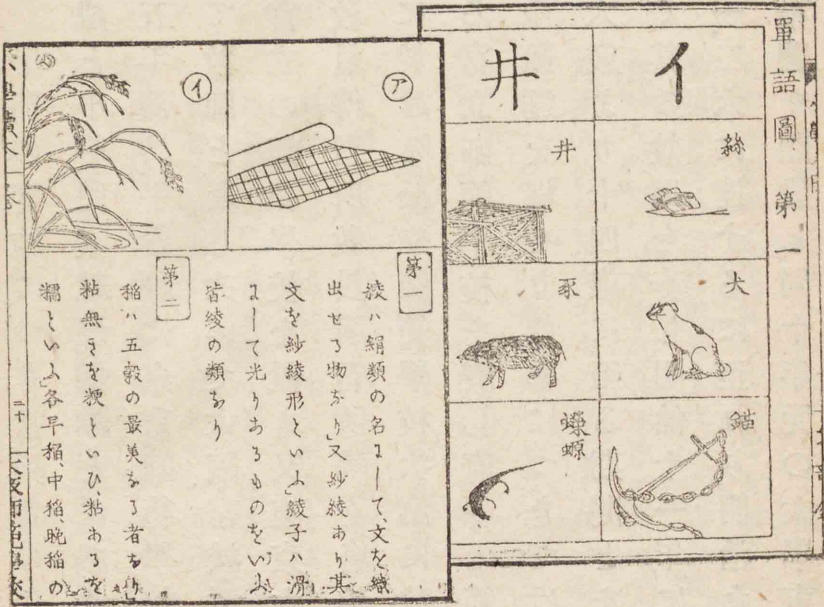 單語圖 第一
イ
絲
犬
錨
井
井
豕
蠑螈
ア
イ
第一
綾ハ絹類の名にして、文を織
出せる物なり」又紗綾あり其
文を紗綾形といふ」綾子ハ滑
にして光りあるものをいふ
皆綾の類なり
第二
稲ハ五穀の最美なる者なり」
粘無きを粳といひ、粘あるを
糯といふ」各早稲、中稲、晩稲の
小學讀本 一 卷
二十
大阪師範學校